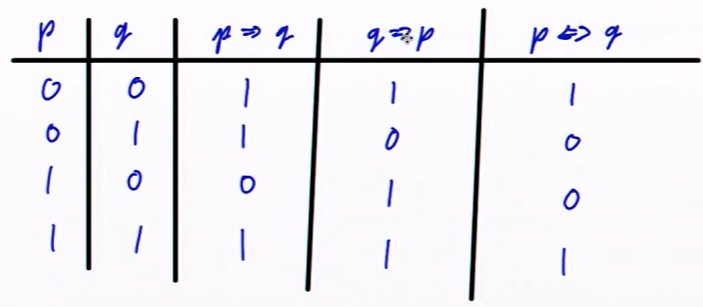 p q p ⇒ q q ⇒ p p ⇔ q
0 0 1 1 1
0 1 1 0 0
1 0 0 1 0
1 1 1 1 1